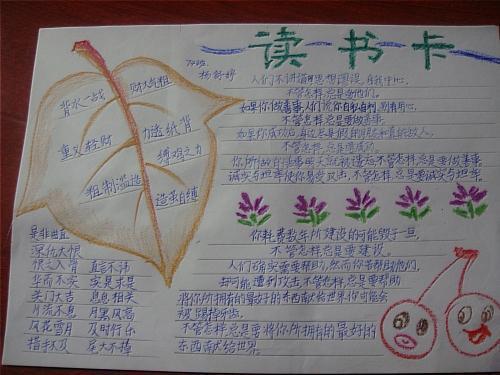 读书卡
杨舒婷
背水一战
财大气粗
重义轻财
力透纸背
缚鸡之力
粗制滥造
作茧自缚
是非曲直
深仇大恨
恨之入骨 直言不讳
华而不实 实事求是
关门大吉 息息相关
川流不息 月黑风高
风花雪月 及时行乐
措手不及 尾大不掉
人们不讲道理思想谬误,自我中心,
不管怎样总是要爱他们。
如果你做善事,人们说你自私自利,别有用心,
不管怎样总是要做善事。
如果你成功后,身边尽是假的朋友和真的敌人,
不管怎样总是要成功。
你所做的善事明天就被遗忘不管怎样,总是要做善事
诚实与坦率使你易受攻击,不管怎样,总是要诚实与坦率
你耗费数年所建设的可能毁于一旦,
不管怎样总是要建设。
人们确实需要帮助,然而你若帮助他们,
却可能遭到攻击,不管怎样总是要帮助
将你所拥有的最好的东西献给世界,你可能会
被踢掉牙齿,
不管怎样总是要将你所拥有的最好的
东西献给世界。